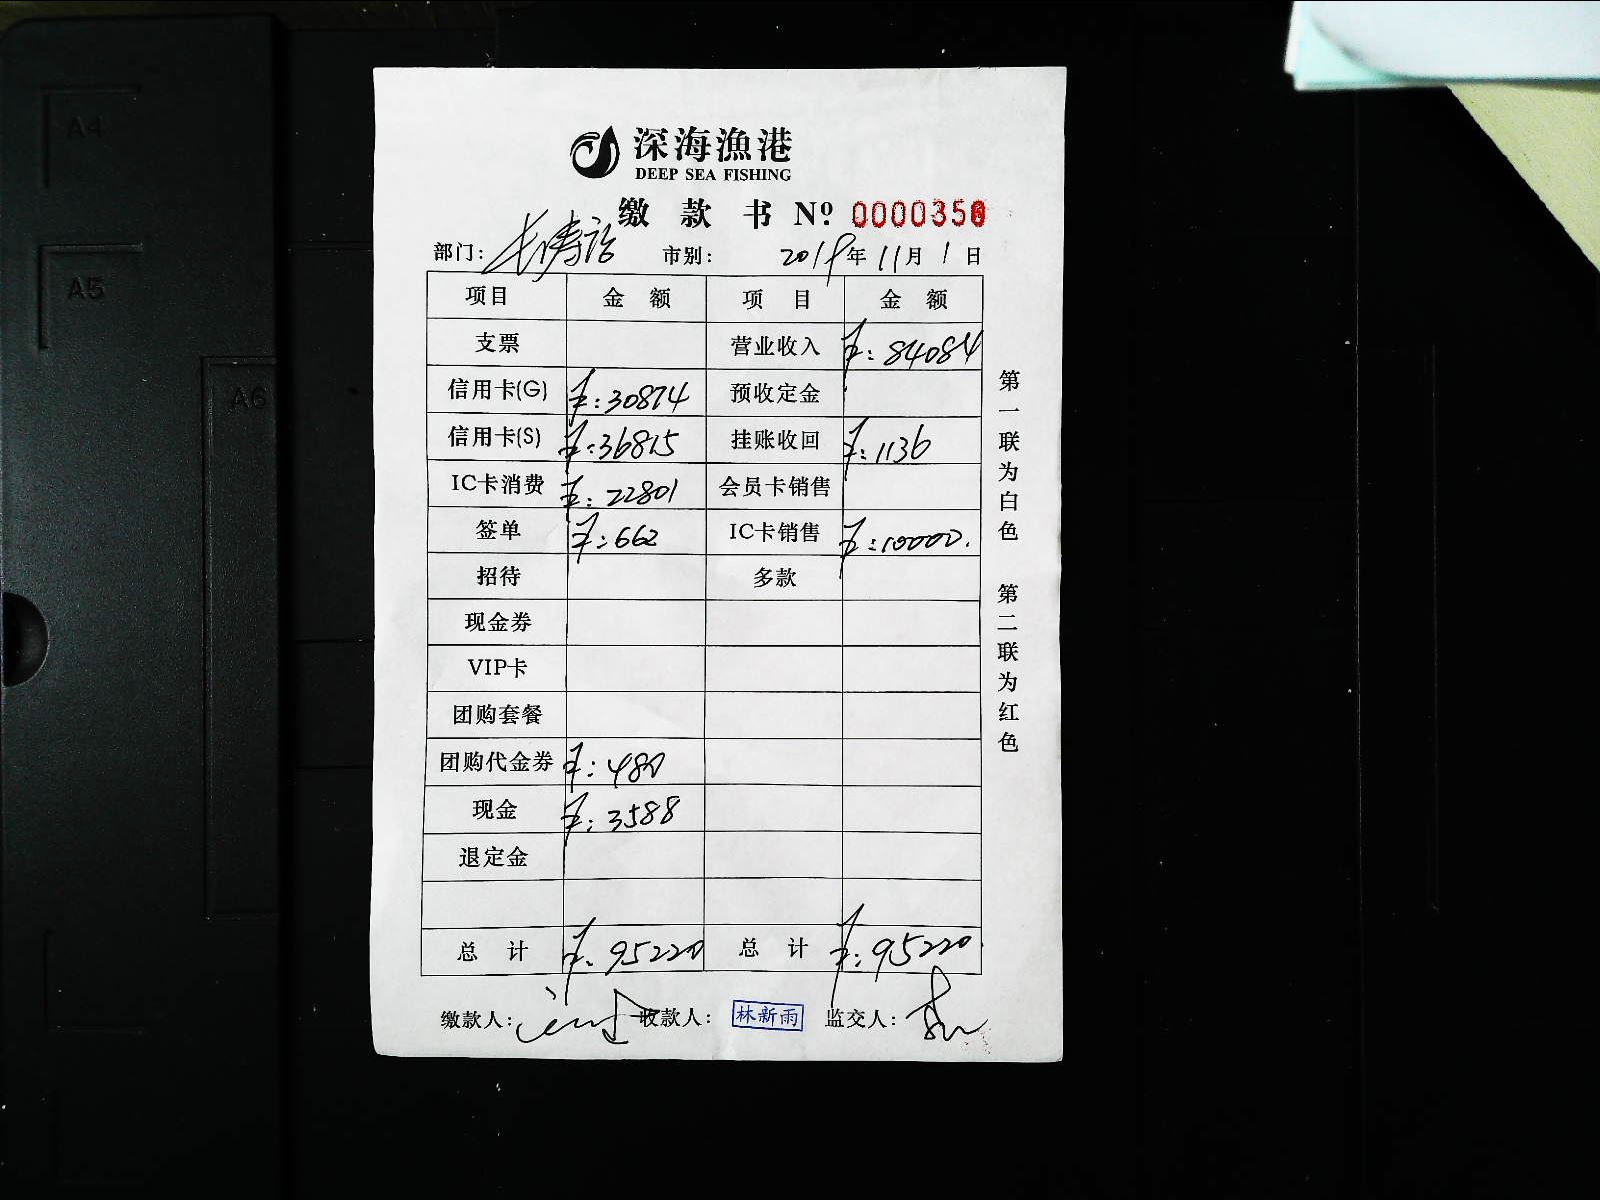 A4
A5
A6
深海漁港
DEEP SEA FISHING
缴款书 Nº 0000350
部门: 长寿路 市别: 2019年11月1日
项目 金额 项目 金额
支票 营业收入 ¥:84084
信用卡(G) ¥:30874 预收定金
信用卡(S) ¥:36815 挂账收回 ¥:1136
IC卡消费 ¥:22801 会员卡销售
签单 ¥:662 IC卡销售 ¥:10000.
招待 多款
现金券
VIP卡
团购套餐
团购代金券 ¥:480
现金 ¥:3588
退定金
总计 ¥:95220 总计 ¥:95220.
缴款人: 收款人: 林新雨 监交人:
第一联为白色 第二联为红色